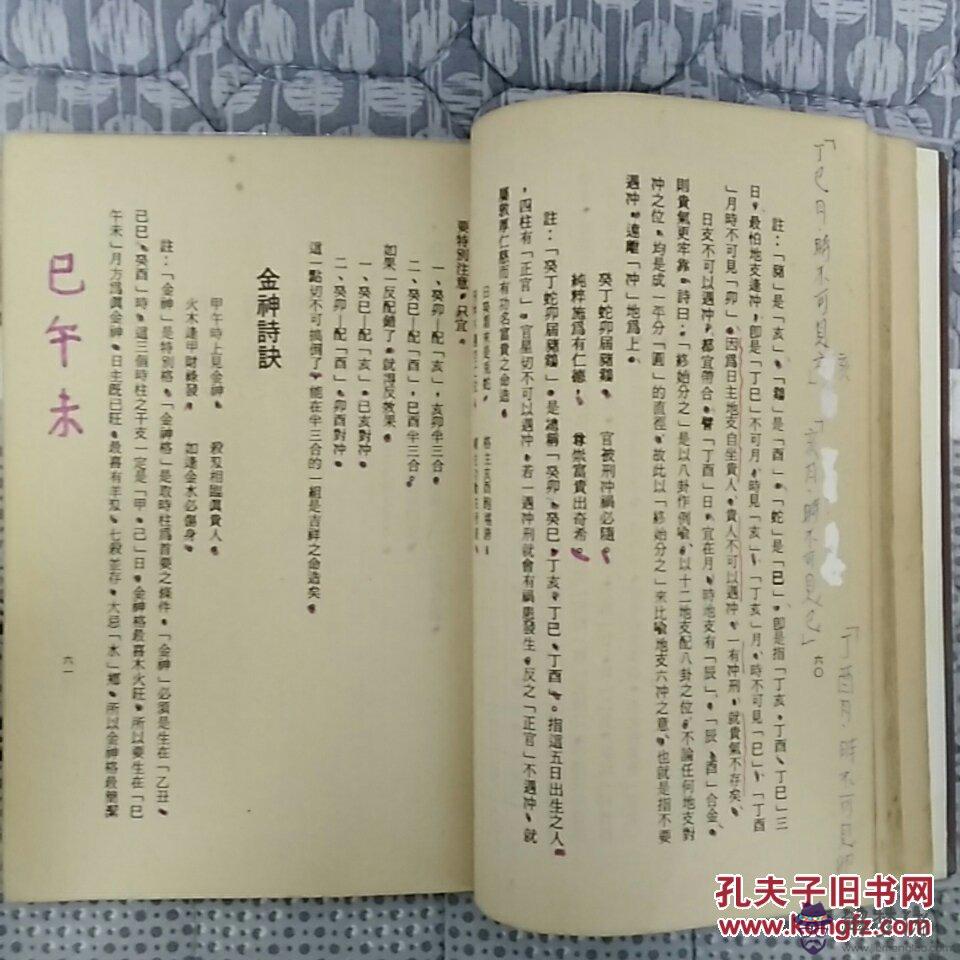 註：「豬」是「亥」、「鷄」是「酉」、「蛇」是「巳」、卽是指「丁亥、丁酉、丁巳」三
日、最怕地支逢冲、卽是「丁巳」不可月、時見「亥」、「丁亥」月、時不可見「巳」、「丁酉
」月時不可見「卯」、因爲日主地支自坐貴人、貴人不可以遇冲、一有冲刑、就貴氣不存矣、
日支不可以遇冲、都宜帶合、譬「丁酉」日、宜在月、時地支有「辰」、「辰、酉」合金、
則貴氣更牢靠、詩曰：「終始分之」是以八卦作例喩、以十二地支配八卦之位、不論任何地支對
冲之位、均是成一年分「圓」的直徑、故此以「終始分之」來比喩地支六冲之意、也就是指不要
遇冲、遠離「冲」地爲上、
癸丁蛇卯居豬鷄、　官被刑冲禍必隨、
純粹施爲有仁德、　尊崇富貴出奇希、
註：「癸丁蛇卯居豬鷄」、是謂稱「癸卯、癸巳、丁亥、丁巳、丁酉」。指這五日出生之人
、四柱有「正官」、官星切不可以遇冲、若一遇冲刑就會有禍患發生、反之「正官」不遇冲、就
屬敦厚仁慈而有功名富貴之命造、
要特別注意、只宜
一、癸卯—配「亥」、亥卯半三合、
二、癸巳—配「酉」、巳酉半三合、
如果一反配錯了、就得反效果、
一、癸巳—配「亥」、巳亥對冲、
二、癸卯—配「酉」、卯酉對冲、
這一點切不可搞倒了、能在半三合的一組是吉祥之命造矣、
六〇
「丁巳月、時不可見
月、時不可見巳」
「丁酉月、時不可見卯
金神詩訣
甲午時上見金神、　殺刄相臨眞貴人、
火木逢甲財祿發、　如逢金水必傷身、
註：「金神」是特別格、「金神格」是取時柱爲首要之條件、「金神」必須是生在「乙丑、
己巳、癸酉」時、這三個時柱之干支一定是「甲、己」日、金神格最喜木火旺、所以要生在「巳
午未」月方爲眞金神、日主旣已旺、最喜有羊刄、七殺並存、大忌「水」鄉、所以金神格最簡潔
六一
巳午未
孔夫子旧书网
www.kongfz.com